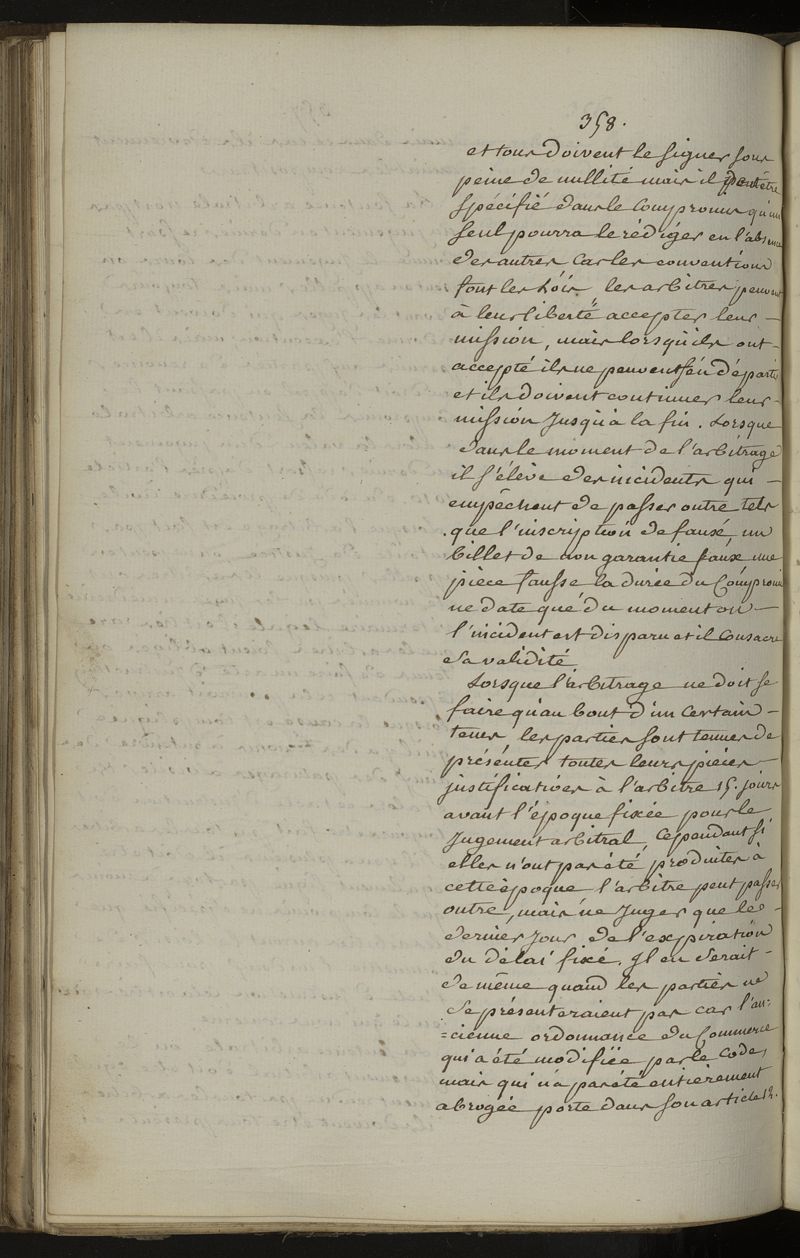 358.
et tous doivent le signer sous
peine de nullité mais il peut être
spécifié dans le Compromis qu'un
seul pourra le rédiger en l'absence
des autres car les conventions
font les Lois. les arbitres peuvent
à leur liberté accepter leur —
mission, mais lorsqu'ils ont —
accepté ils ne peuvent s'en départir
et ils doivent continuer leur —
mission Jusqu'à la fin. Lorsque
dans le moment de l'arbitrage
il s'élève des incidents qui —
empêchent de passer outre tels
que l'inscription de faux, un
billet de non garantie faux une
pièce fausse la durée du Compromis
ne date que du moment où —
l'incident est disparu et il consacre
sa validité
Lorsque l'arbitrage ne doit se
faire qu'au bout d'un certain —
tems, les parties sont tenues de
présenter toutes leurs pièces —
justificatives à l'arbitre 15. jours
avant l'époque fixée pour le
Jugement arbitral, Cependant si
elles n'ont pas été produites à
cette époque l'arbitre peut passer
outre, mais ne Juger que le —
dernier Jour de l'expiration
du délai fixé. Il en serait —
de même quand les parties ne
se présenteraient pas car l'an-
=cienne ordonnance du Commerce
qui a été modifiée par le Code,
mais qui n'a pas été entièrement
abrogée porte dans son article 12.